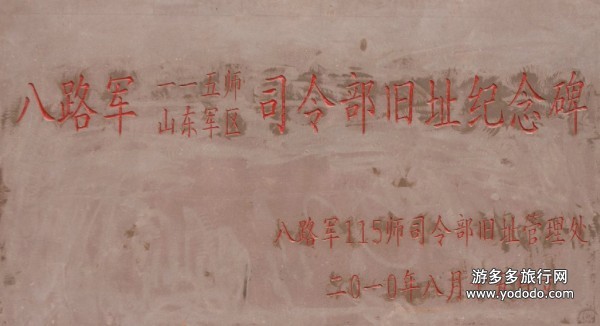 八路军 一一五师 司令部旧址纪念碑
山东军区
八路军115师司令部旧址管理处
二0一0年八月
游多多旅行网
www.yododo.com